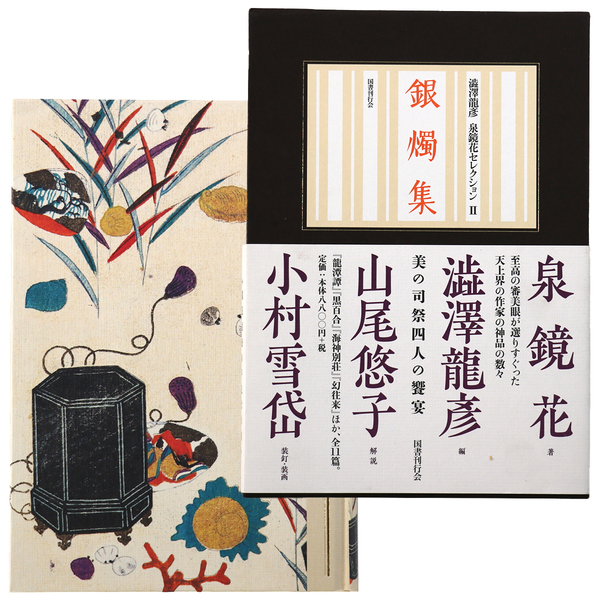 澁澤龍彥 泉鏡花セレクションⅡ
銀燭集
国書刊行会
泉鏡花 著
至高の審美眼が選りすぐった
天上界の作家の神品の数々
澁澤龍彥 編
美の司祭四人の饗宴 国書刊行会
山尾悠子 解説
『龍潭譚』『黒百合』『海神別荘』『幻往来』ほか、全11篇。
定価：本体八八〇〇円+税
小村雪岱 装釘・装画